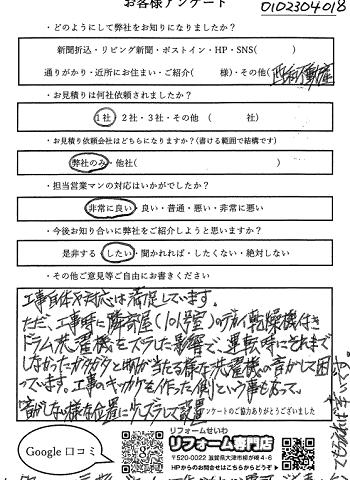 お客様アンケート
0102304018
・どのようにして弊社をお知りになりましたか？
新聞折込・リビング新聞・ポストイン・HP・SNS(　　　)
通りがかり・近所にお住まい・ご紹介(　　　様)・その他(西和不動産
・お見積りは何社依頼されましたか？
1社 2社・3社・その他（　　　社）
・お見積り依頼会社はどちらになりますか？(書ける範囲で結構です)
弊社のみ・他社(　　　)
・担当営業マンの対応はいかがでしたか？
非常に良い・良い・普通・悪い・非常に悪い
・今後お知り合いに弊社をご紹介しようと思いますか？
是非する・したい・聞かれれば・したくない・絶対しない
・その他ご意見等ご自由にお書きください
工事自体や対応は満足しています。
ただ、工事時に隣部屋(101号室)のデカイ乾燥機付き
ドラム洗濯機をズラした影響で、運転時にそれまで
しなかったガタガタと何か当たる様な洗濯機の音がして困
っています。工事のキッカケを作った側という事もあって、
音がしない様な位置に少しズラして設置
アンケートのご協力ありがとうございました
Google 口コミ
リフォームせいわ
リフォーム専門店
〒520-0022 滋賀県大津市柳が崎4-6
HPからのお問合せはこちらからどうぞ▶